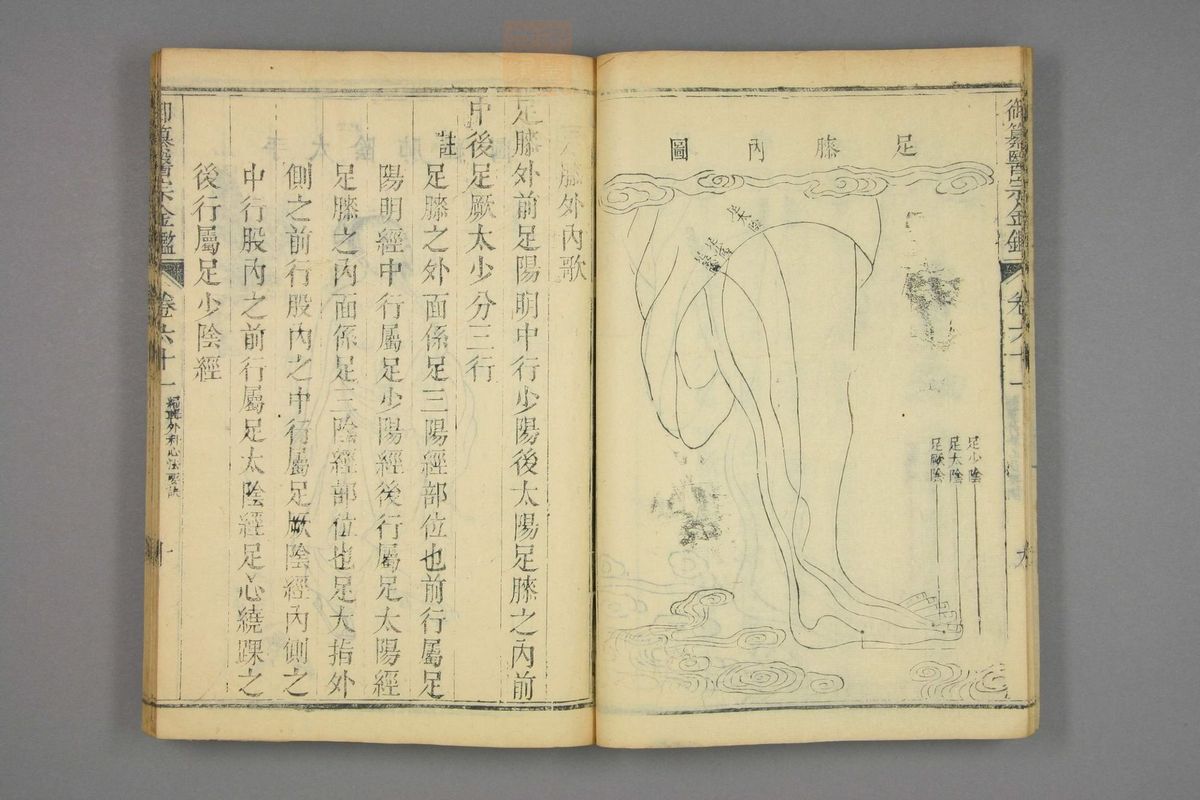 御纂醫宗金鑑 卷六十一 九
足膝內圖
足少陰
足太陰
足厥陰
膝外內歌
足膝外前足陽明中行少陽後太陽足膝之內前
中後足厥太少分三行
註 足膝之外面係足三陽經部位也前行屬足
陽明經中行屬足少陽經後行屬足太陽經
足膝之內面係足三陰經部位也足大指外
側之前行股內之中行屬足厥陰經內側之
中行股內之前行屬足太陰經足心繞踝之
後行屬足少陰經
御纂醫宗金鑑 卷六十一 編輯外科心法要訣